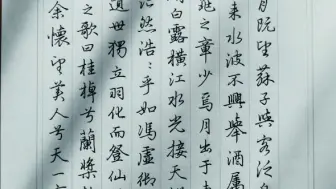 月既望蘇子與客泛
来水波不興舉酒属
窕之章少焉月出于
白露橫江水光接天
茫然浩〻乎如馮虛御
遺世獨立羽化而登仙
之歌曰桂棹兮蘭槳
余懷望美人兮天一